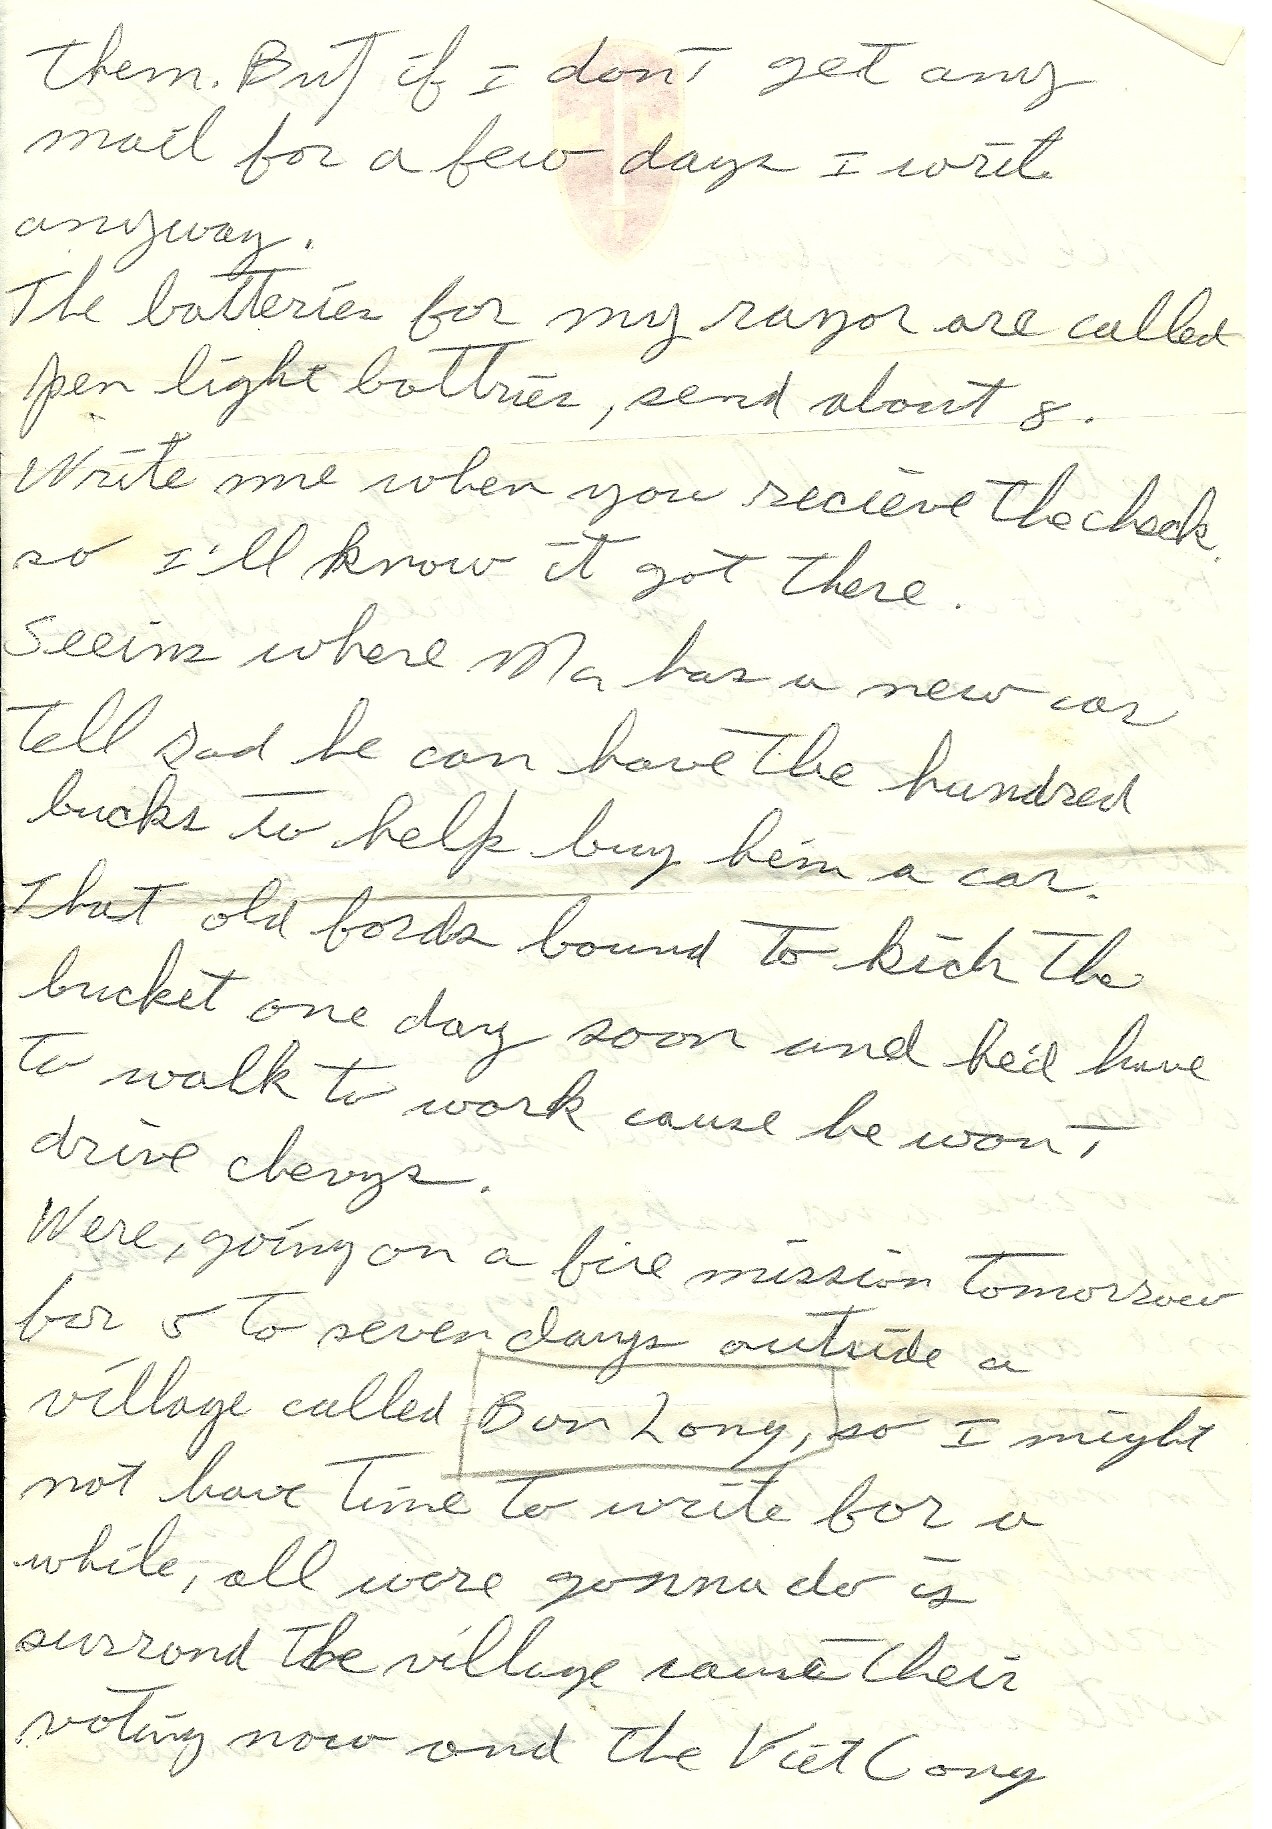 them. But if I don't get any
mail for a few days I writ
anyway.
The batteries for my razor are called
pen light battries, send about 8.
Write me when you recieve the check
so I'll know it got there.
Seeims where Ma has a new car
tell Dad he can have the hundred
bucks to help buy him a car.
That old fords bound to kick the
bucket one day soon and he'd have
to walk to work cause he won't
drive chevys.
Were, going on a fire mission tomorrow
for 5 to seven days outside a
village called Bon Long, so I might
not have time to write for a
while, all were gonna do is
surrond the village cause their
voting now and the Viet Cong